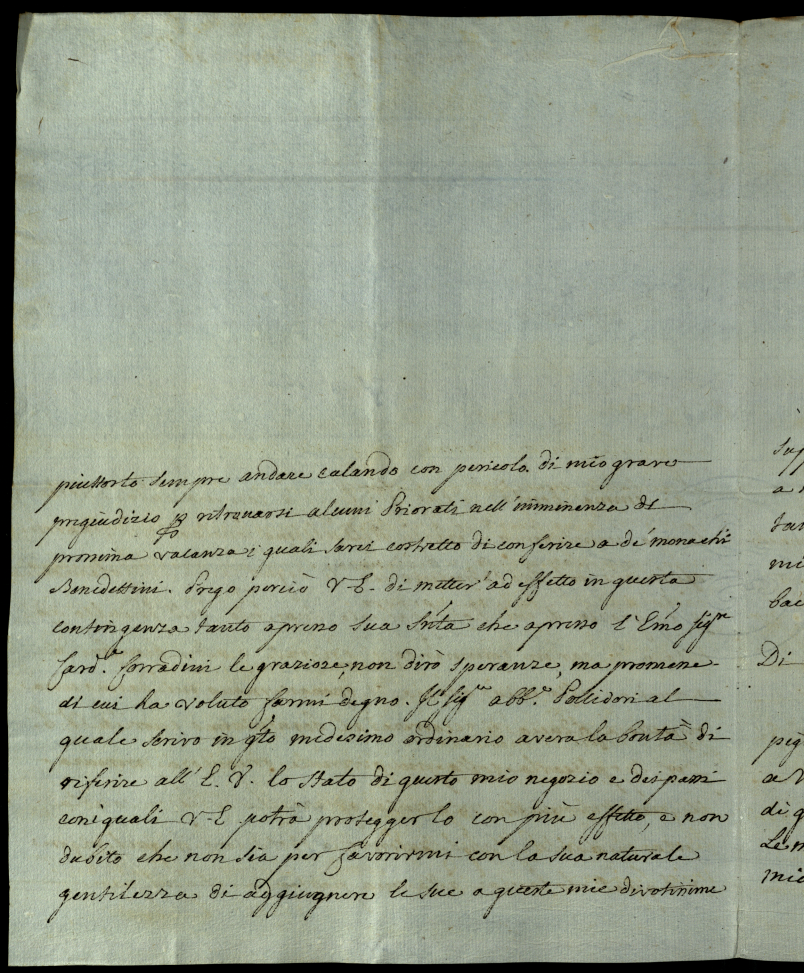 piuttosto sempre andare calando con pericolo di mio grave
pregiudizio p ritrovarsi alcuni Priorati nell'imminenza di
prossima vacanza i quali sarei costretto di conferire a de' monachi
Benedettini. Prego perciò V-E. di metter' ad effetto in questa
contingenza tanto apresso sua Sntà che apresso l'Emo sigre
Card.e Corradini le graziose, non dirò speranze, ma promesse
di cui ha voluto farmi degno. Il sigre abb.e Pollidori al
quale scrivo in qto medesimo ordinario averà la bontà di
riferire all' E. V. lo stato di questo mio negozio e dei passi
con i quali V-E potrà proteggerlo con più effetto, e non
dubito che non sia per favorirmi con la sua naturale
gentilezza di aggiugnere le sue a queste mie divotissime
Di
a V
di q
Le m
mie